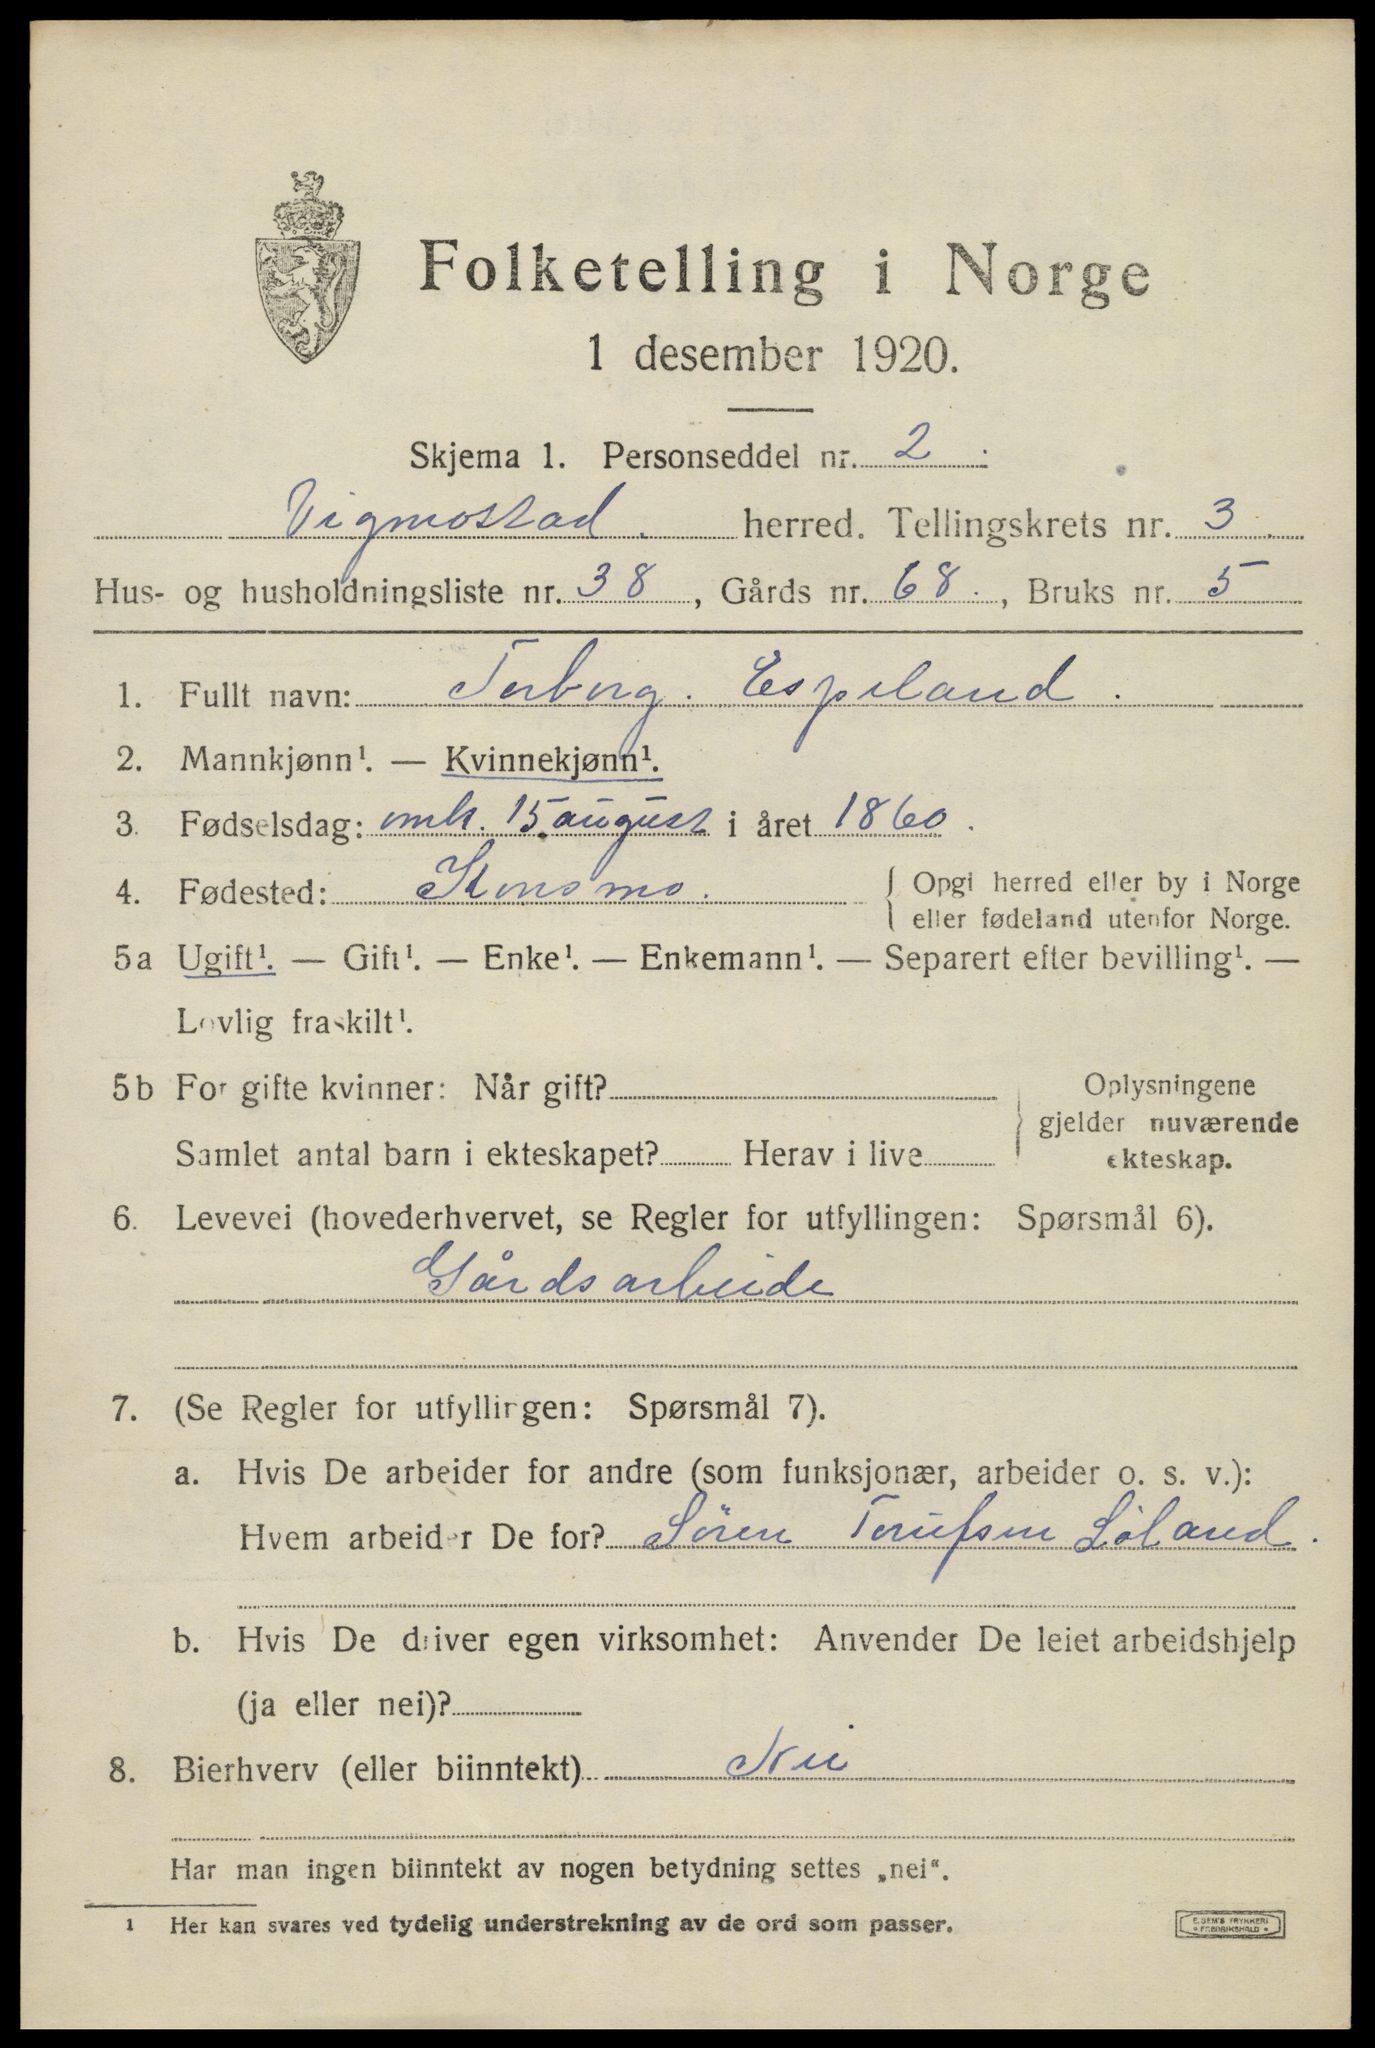 Folketelling i Norge
1 desember 1920.
Skjema 1. Personseddel nr. 2.
Vigmostad. herred. Tellingskrets nr. 3
Hus- og husholdningsliste nr. 38, Gårds nr. 68., Bruks nr. 5
1. Fullt navn: Torborg. Espeland.
2. Mannkjønn¹. — Kvinnekjønn¹.
3. Fødselsdag: omk. 15 august i året 1860.
4. Fødested: Konsmo. { Opgi herred eller by i Norge
eller fødeland utenfor Norge.
5a Ugift¹. — Gift¹. — Enke¹. — Enkemann¹. — Separert efter bevilling¹. —
Lovlig fraskilt¹.
5b For gifte kvinner: Når gift? } Oplysningene
gjelder nuværende
Samlet antal barn i ekteskapet? Herav i live ekteskap.
6. Levevei (hovederhvervet, se Regler for utfyllingen: Spørsmål 6).
Gårdsarbeide
7. (Se Regler for utfyllingen: Spørsmål 7).
a. Hvis De arbeider for andre (som funksjonær, arbeider o. s. v.):
Hvem arbeider De for? Sören Löland.
b. Hvis De driver egen virksomhet: Anvender De leiet arbeidshjelp
(ja eller nei)?
8. Bierhverv (eller biinntekt) Nei
Har man ingen biinntekt av nogen betydning settes „nei“.
1 Her kan svares ved tydelig understrekning av de ord som passer.
E. SEM'S TRYKKERI
• FREDRIKSHALD •